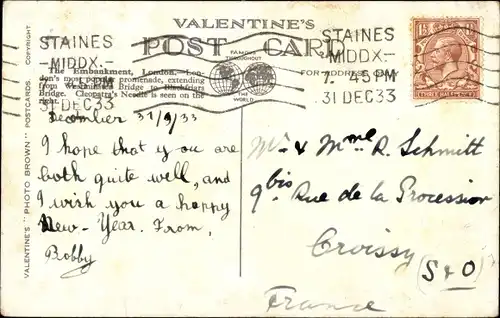 VALENTINE'S
POST CARD
FAMOUS THROUGHOUT THE WORLD
FOR ADDRESS ONLY
STAINES
MIDDX.
7.45 PM
31 DEC 33
STAINES
MIDDX.
7.45 PM
31 DEC 33
The Embankment, London. Lon-
don's most popular promenade, extending
from Westminster Bridge to Blackfriars
Bridge. Cleopatra's Needle is seen on the
right.
VALENTINE'S "PHOTO BROWN" POSTCARDS. COPYRIGHT.
THREE HALF PENCE
December 31/9/33
I hope that you are
both quite well, and
I wish you a happy
New-Year. From,
Bobby
Mr & Mme R. Schmitt
9bis Rue de la Procession
Croissy
(S & O)
France